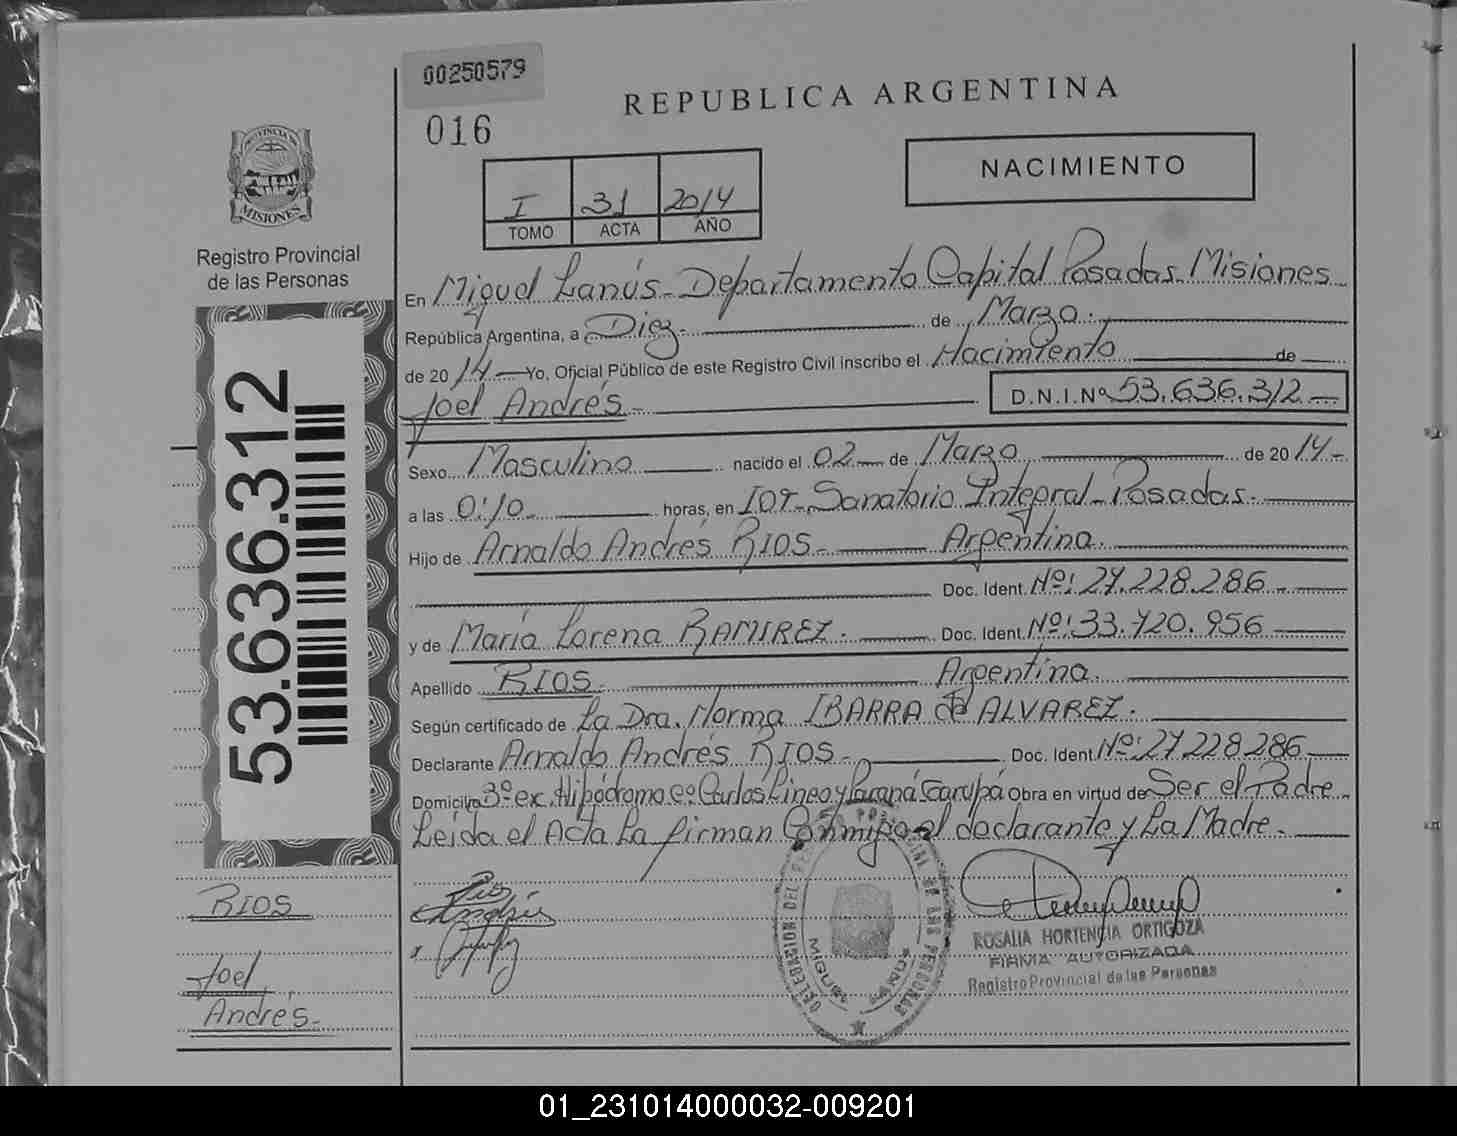 00250579
016
REPUBLICA ARGENTINA
NACIMIENTO
I 31 2014
TOMO ACTA AÑO
PROVINCIA DE
MISIONES
Registro Provincial
de las Personas
En Miguel Lanús - Departamento Capital Posadas - Misiones
República Argentina, a Diez de Marzo.
de 2014 Yo, Oficial Público de este Registro Civil inscribo el Nacimiento de
Joel Andrés - D.N.I.Nº 53.636.312
Sexo Masculino nacido el 02 de Marzo de 2014
a las 0:10 horas, en IOT - Sanatorio Integral - Posadas.
Hijo de Arnaldo Andrés RIOS - Argentina.
Doc. Ident. Nº: 27.228.286
y de María Lorena RAMIREZ. Doc. Ident. Nº: 33.720.956
Apellido RIOS. Argentina.
Según certificado de La Dra. Norma IBARRA de ALVAREZ.
Declarante Arnaldo Andrés RIOS - Doc. Ident. Nº: 27.228.286
Domicilio Bº ex Hipódromo Cº Carlos Lineo y Paraná Garupá obra en virtud de Ser el Padre
Leída el Acta La firman Conmigo el declarante y La Madre.
53.636.312
RIOS
Joel
Andrés
DELEGACION DEL
DE LAS PERSONAS
MIGUEL LANUS
ROSALIA HORTENCIA ORTIGOZA
FIRMA AUTORIZADA
Registro Provincial de las Personas
01_231014000032-009201